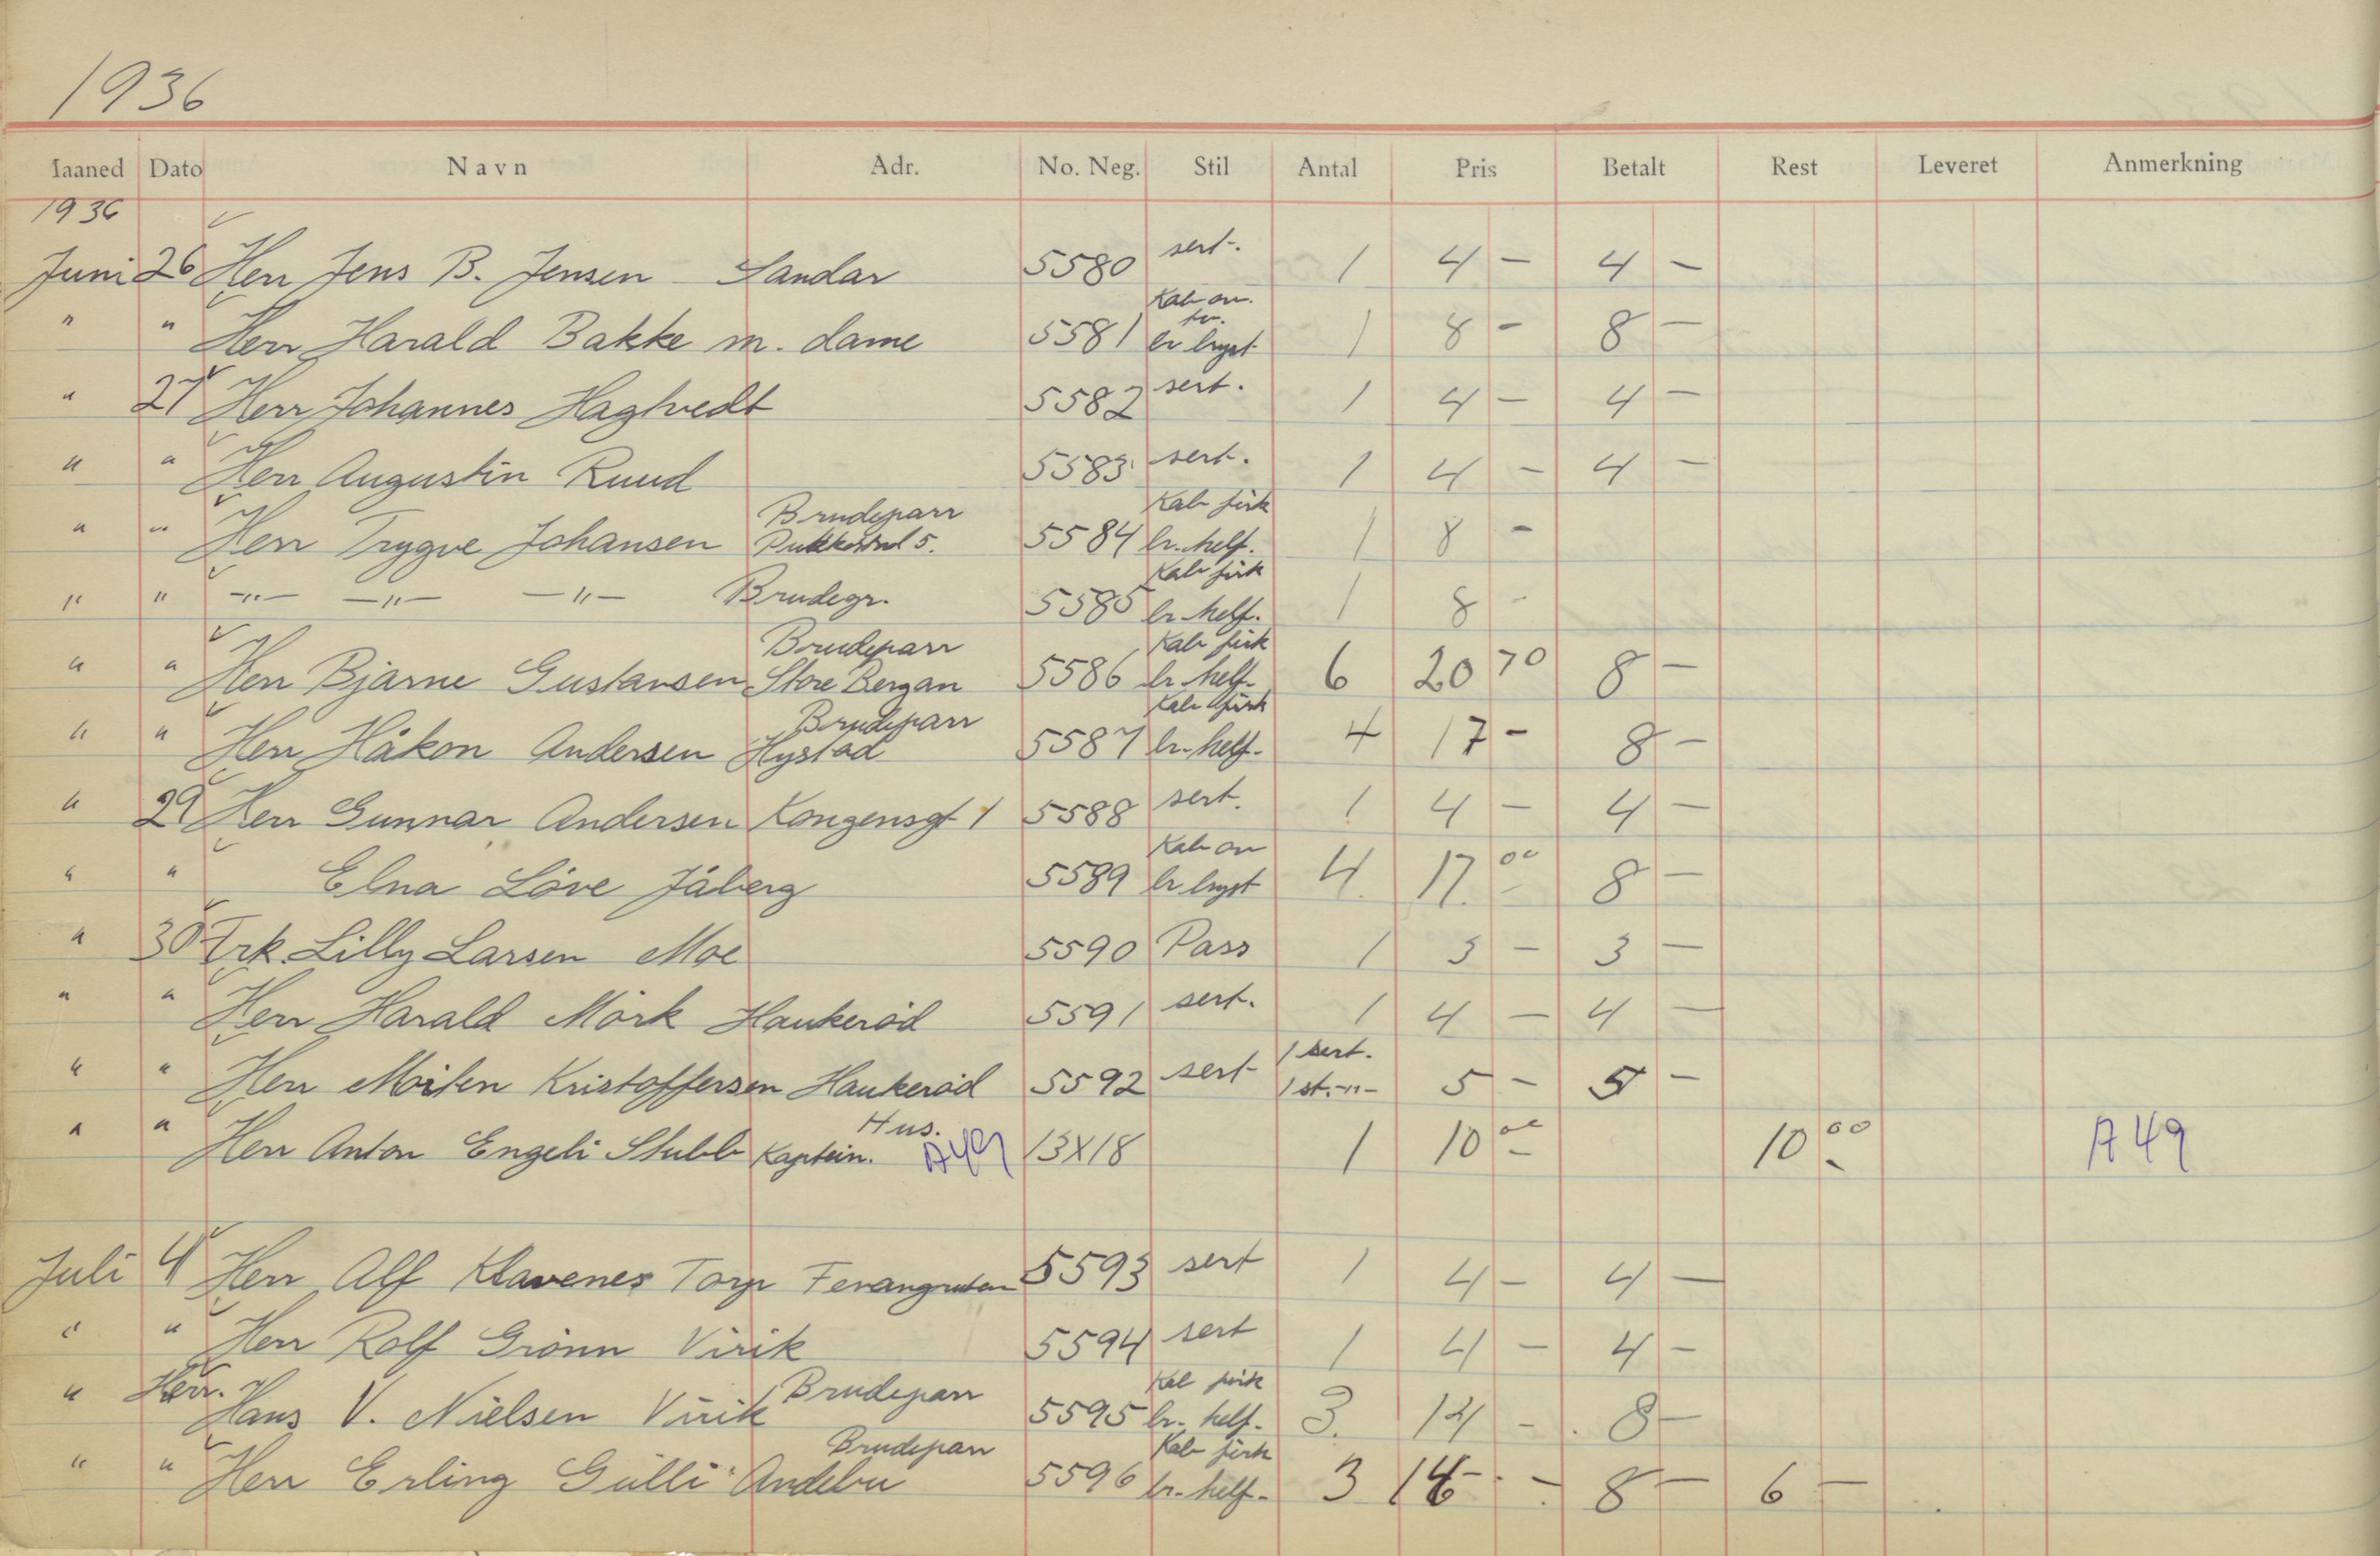 1936
Maaned Dato Navn Adr. No. Neg. Stil Antal Pris Betalt Rest Leveret Anmerkning
1936
Juni 26 Herr Jens B. Jensen Sandar 5580 sert. 1 4 - 4 -
Kab
" " Herr Harald Bakke m. dame 5581 br bryst 1 8 - 8 -
" 27 Herr Johannes Hagtvedt 5582 sert. 1 4 - 4 -
" " Herr Augustin Ruud 5583 sert. 1 4 - 4 -
Brudeparr Kab firk
" " Herr Trygve Johansen 5. 5584 br. helf. 1 8 -
Kab firk
" " -"- -"- -"- Brudegr. 5585 br. helf. 1 8 -
Brudeparr Kab firk
" " Herr Bjarne Gustavsen Store Bergan 5586 br. helf. 6 20 70 8 -
Brudeparr Kab firk
" " Herr Håkon Andersen Hystad 5587 br. helf. 4 17 - 8 -
" 29 Herr Gunnar Andersen Kongensgt 1 5588 sert. 1 4 - 4 -
Kab
" " Elna Löve Jåberg 5589 br bryst 4. 17. 00 8 -
" 30 Frk. Lilly Larsen Moe 5590 Pass 1 3 - 3 -
" " Herr Harald Mörk Haukeröd 5591 sert. 1 4 - 4 -
1 sert.
" " Herr Kristoffersen Haukeröd 5592 sert 1 st. -"- 5 - 5 -
Hus.
" " Herr Anton Engeli Stubb Kaptein. A49 13X18 1 10 00 10 00 A49
Juli 4 Herr Alf Klavenes Torp 5593 sert 1 4 - 4 -
" " Herr Rolf Grönn Virik 5594 sert 1 4 - 4 -
Herr. Brudeparr Kab firk
" Hans V. Nielsen Virik 5595 br. helf. 3. 14 - 8 -
Brudeparr Kab firk
" " Herr Erling Gülli Andebu 5596 br. helf. 3 14 - 8 - 6 -